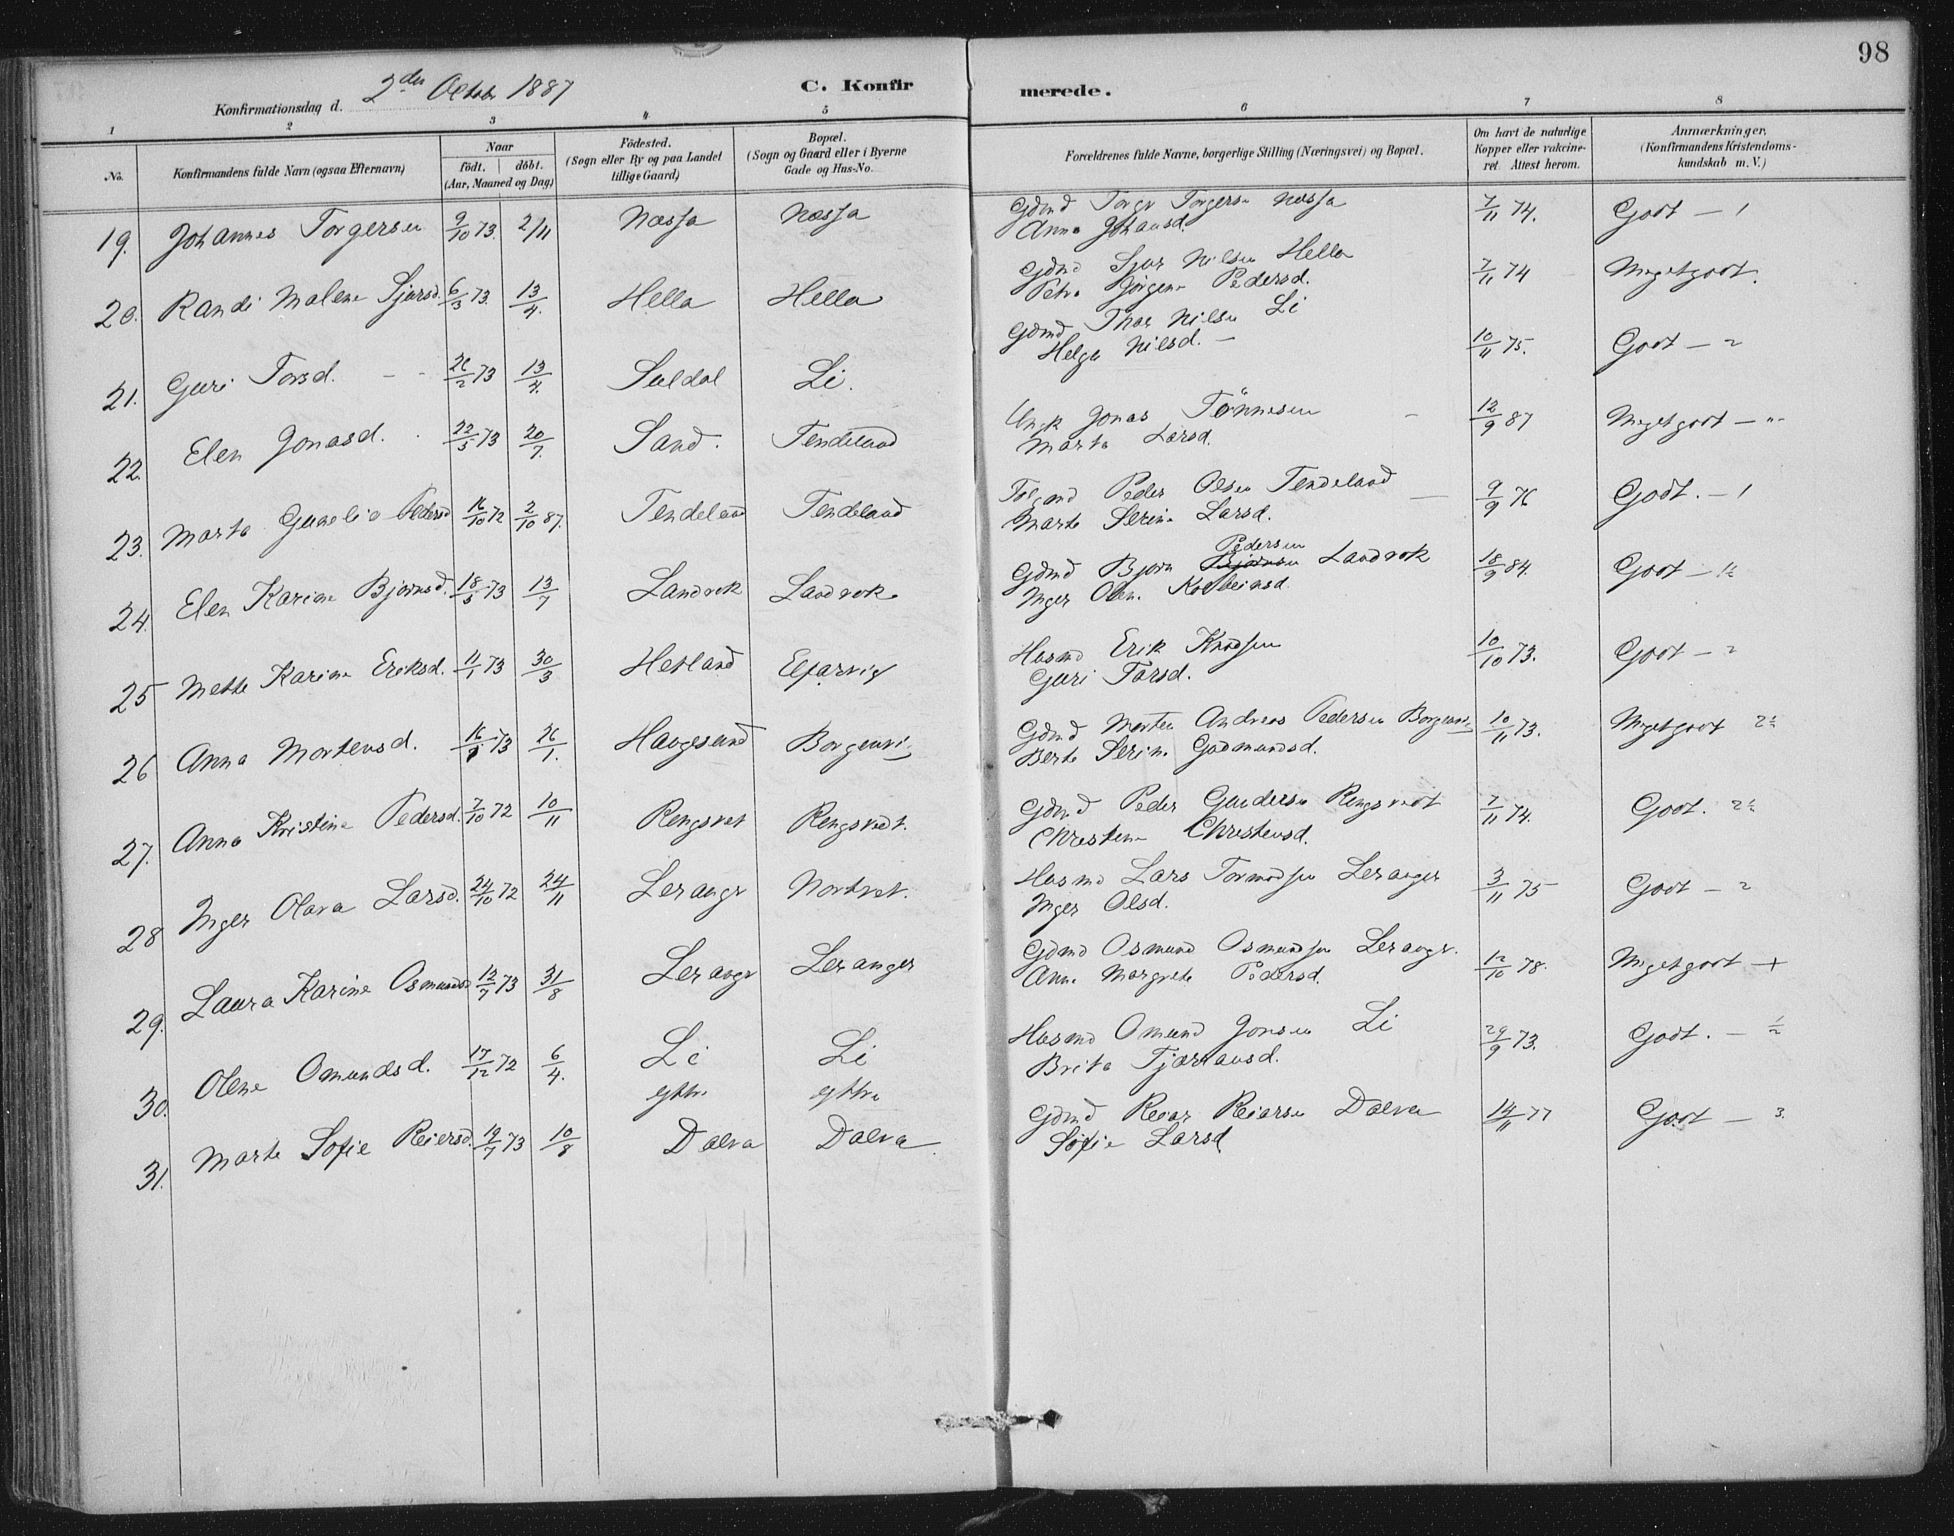 98
Konfirmationsdag d. 2den Octobr 1887 C. Konfirmerede.
1 2 3 4 5 6 7 8
No. Konfirmandens fulde Navn (ogsaa Efternavn) Naar födt. döbt. (Aar, Maaned og Dag) Födested. (Sogn eller By og paa Landet tillige Gaard) Bopæl. (Sogn og Gaard eller i Byerne Gade og Hus-No. Forældrenes fulde Navne, borgerlige Stilling (Næringsvei) og Bopæl. Om havt de naturlige Kopper eller vakcineret. Attest herom. Anmærkninger. (Konfirmandens Kristendomskundskab m. V.)
19. Johannes Torgersen 9/10 73. 2/11 Næssa Næssa Gdmd Torgr Torgersn Næssa 7/11 74. Godt - 1
Anna Johansd.
20. Randi Malene Sjursd. 6/3 73. 13/4. Hella Hella Gdmd Sjur Nilsen Hella 7/11 74 Megetgodt.
Petra Bjørgine Pedersd.
21. Guri Torsd. 26/2 73 13/4. Suldal Li. Gdmd Thor Nilsen Li 10/11 75. Godt - 2
Helga Nilsd. -
22. Elen Jonasd. 22/5 73 20/7. Sand. Tendeland Ungk Jonas Tønnesen 12/9 87 Megetgodt - "
Marta Larsd.
23. Marta Gunelia Pedersd 16/10 72 2/10 87. Tendeland Tendeland Peder Olsen Tendeland 9/9 76 Godt. - 1
Marta Serina Larsd.
24. Elen Karine Bjørnsd. 18/5 73 13/7 Landrok Landrok Gdmd Bjørn Pedersen Landrok 18/9 84. Godt - 1½
Inger Olene Kolbeinsd.
25 Mette Karine Eriksd. 11/1 73 30/3 Hetland Elfarvig Husmd Erik Knudsen 10/10 73. Godt - 2
Guri Torsd.
26 Anna Mortensd. 16/1 73 26/1. Haugesund Borgenvig Gdmd Morten Andreas Pedersen Borgenvig 10/11 73. Megetgodt 2½
Berta Serine Gudmundsd.
27. Anna Kristine Pedersd. 7/10 72 10/11 Rengsvet Rengsvedt. Gdmd Peder Gundersn Rengsvedt 7/11 74. Godt. 2½
Christene Christensd.
28 Inger Olava Larsd. 24/10 72 24/11 Lerangr Nortvet. Husmd Lars Tormodsen Leranger 3/11 75 Godt - 2
Inger Olsd.
29. Laura Karine Osmundsd 12/7 73 31/8 Lerangr Leranger Gdmd Osmund Osmundsen Lerangr. 12/10 78. Megetgodt +
Anne Margrete Pedersd.
30. Olene Omundsd. 17/12 72 6/4. Li Li Husmd Omund Jonsen Li 29/9 73. Godt. - ½
Brita Tjærandsd.
31. Marte Sofie Reiersd. 19/7 73 10/8 yttre Dalva yttre Dalva Gdmd Reiar Reiarsn Dalva 14/11 77 Godt - 3.
Sofie Larsd